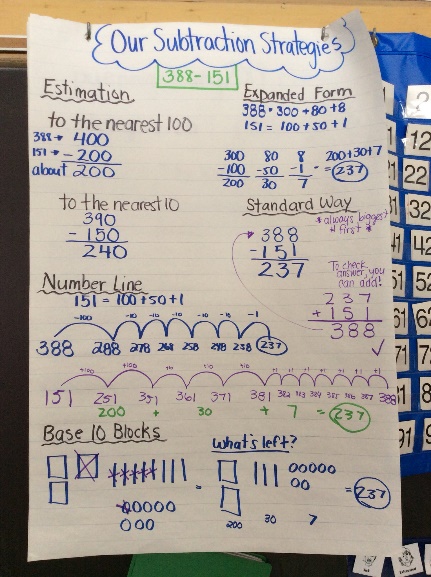 Our Subtraction Strategies
388-151
Estimation
to the nearest 100
388→ 400
151→ - 200
about 200
to the nearest 10
390
- 150
240
Expanded Form
388 = 300 + 80 + 8
151 = 100 + 50 + 1
300 80 8
-100 -50 -1 = 200+30+7
200 30 7 237
Standard Way
*always biggest # first*
388
-151
237
To check answer, you can add!
237
+ 151
388
Number Line
151 = 100 + 50 + 1
-100 -10 -10 -10 -10 -10 -1
388 288 278 268 258 248 238 237
+100 +100 +10 +10 +10 +1 +1 +1 +1 +1 +1 +1
151 251 351 361 371 381 382 383 384 385 386 387 388
200 + 30 + 7 = 237
Base 10 Blocks
What's left?
= 237
200 30 7
12
22
32
41 42
51 52
61
71 72
81
91